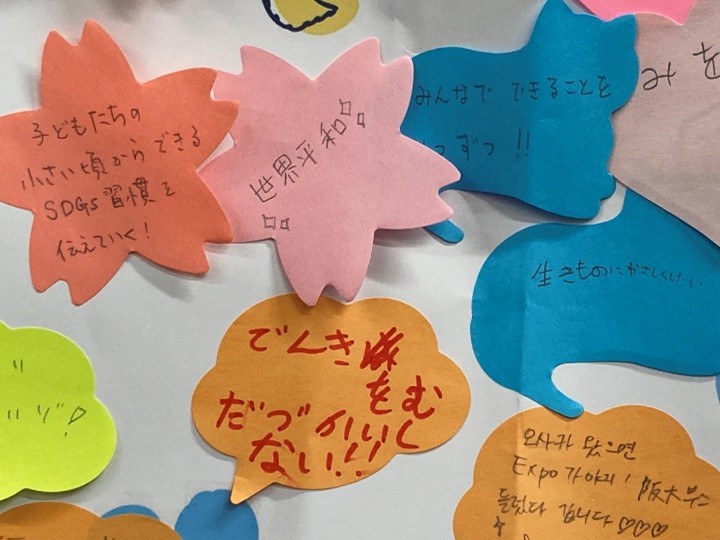 子どもたちの
小さい頃からできる
SDGs習慣を
伝えていく!
世界平和
みんなで できることを
つずつ !!
みを
生きものにやさしくしたい
でんき
をむ
だづかいし
ない!!
오사카 왔으면
Expo 가야지! 阪大부스
들렀다 갑니다♡♡♡